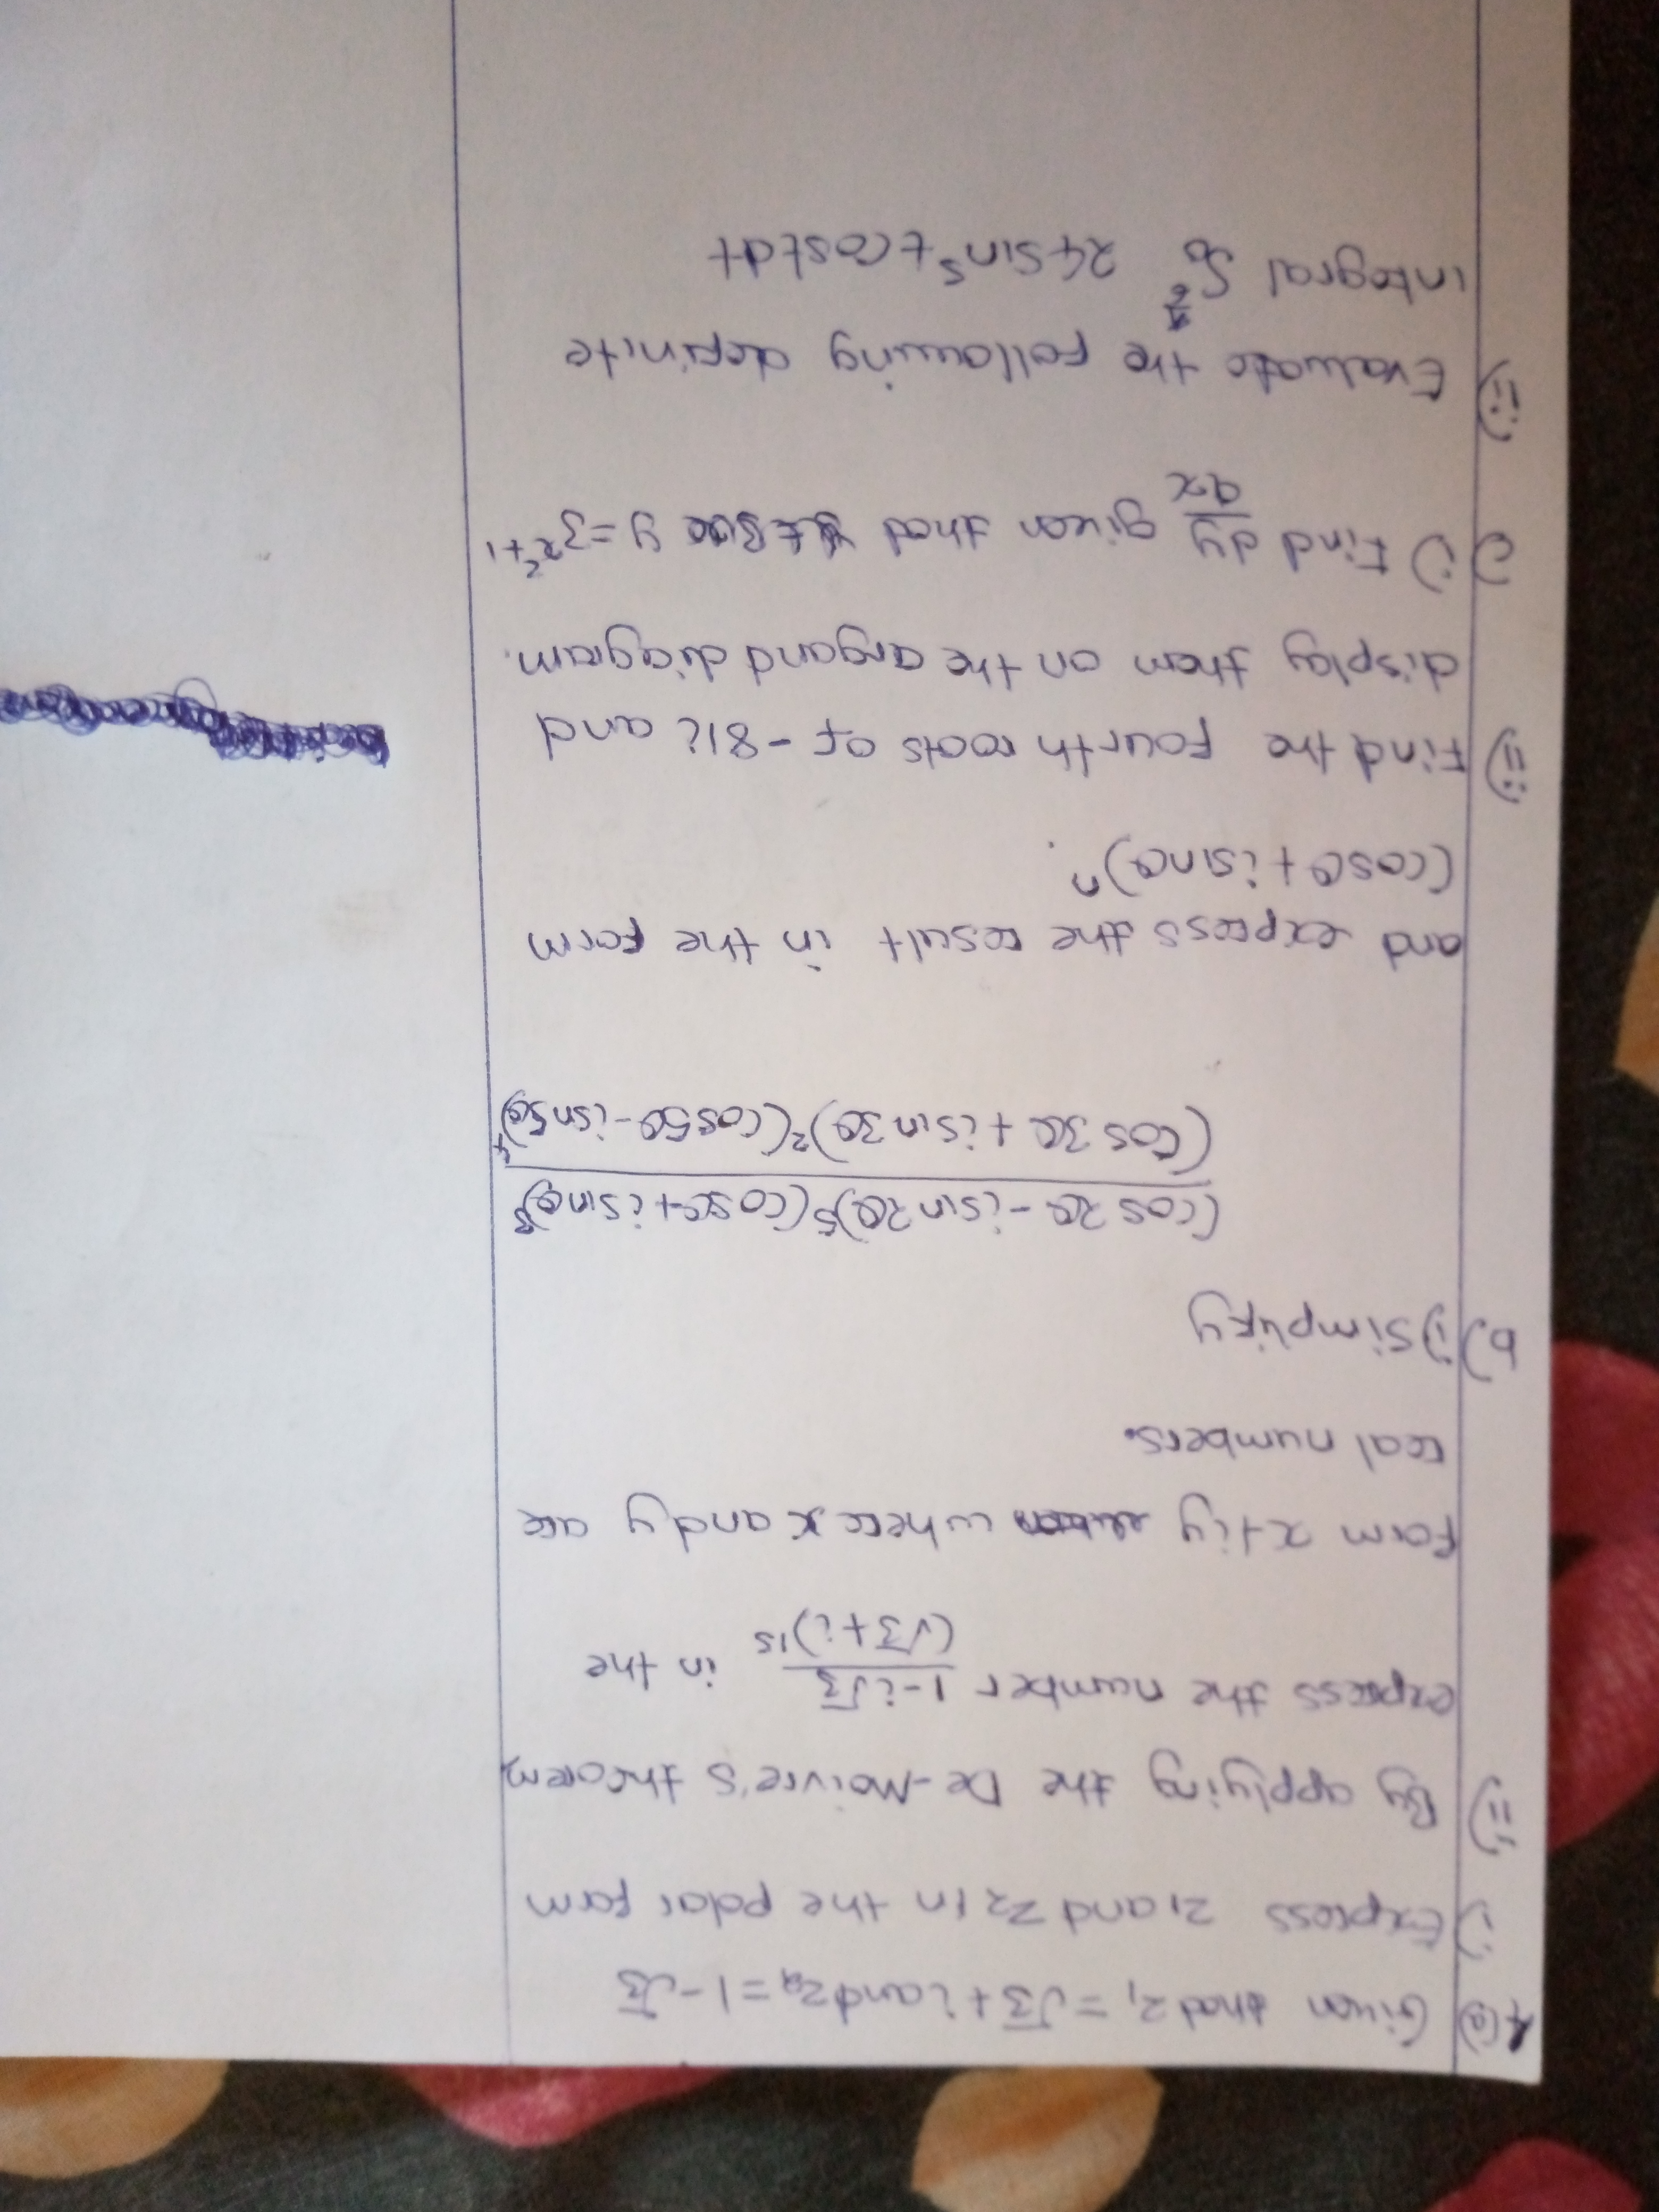 4(a) Given that z₁ = √3 + i and z₂ = 1 - √3
i) Express z₁ and z₂ in the polar form
ii) By applying the De-Moivre's theorem
express the number 1-i√3 / (√3+i)¹⁵ in the
form x+iy where x and y are
real numbers.
b) i) Simplify
(cos 2θ - isin 2θ)⁵(cosθ + isinθ)⁸
(cos 3θ + isin 3θ)²(cos5θ - isin5θ)⁴
and express the result in the form
(cosθ + isinθ)ⁿ.
ii) Find the fourth roots of -81i and
display them on the argand diagram.
c) i) Find dy/dx given that y = 3^x²+1
ii) Evaluate the following definite
integral ∫₀ 24 sin⁵ t cost dt